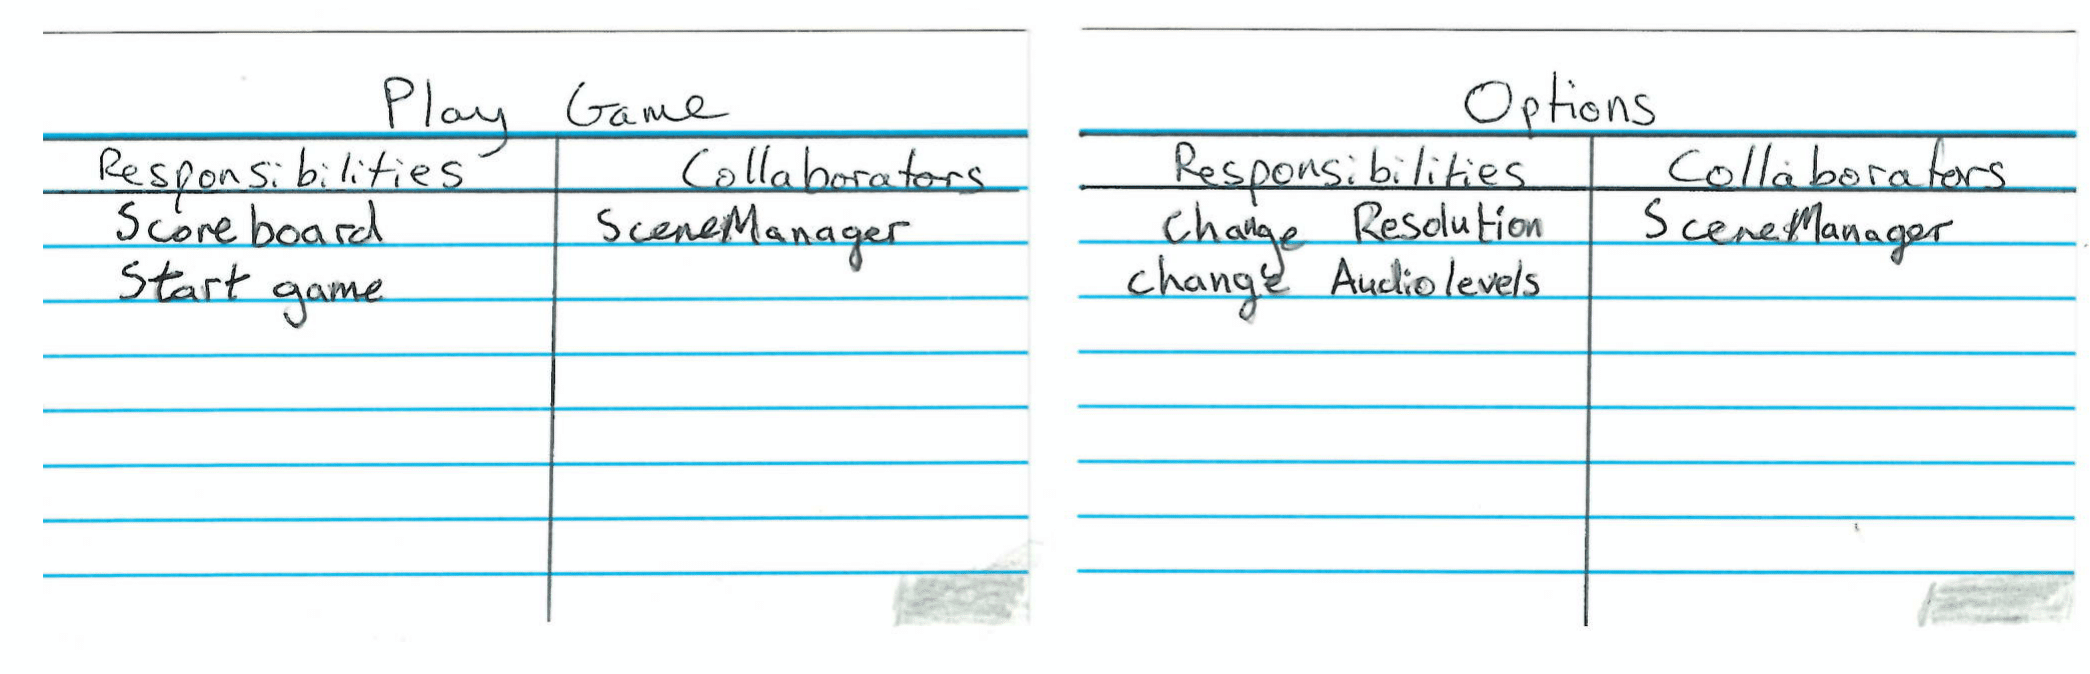 Play Game
Responsibilities Collaborators
Scoreboard SceneManager
Start game
Options
Responsibilities Collaborators
Change Resolution SceneManager
change Audiolevels